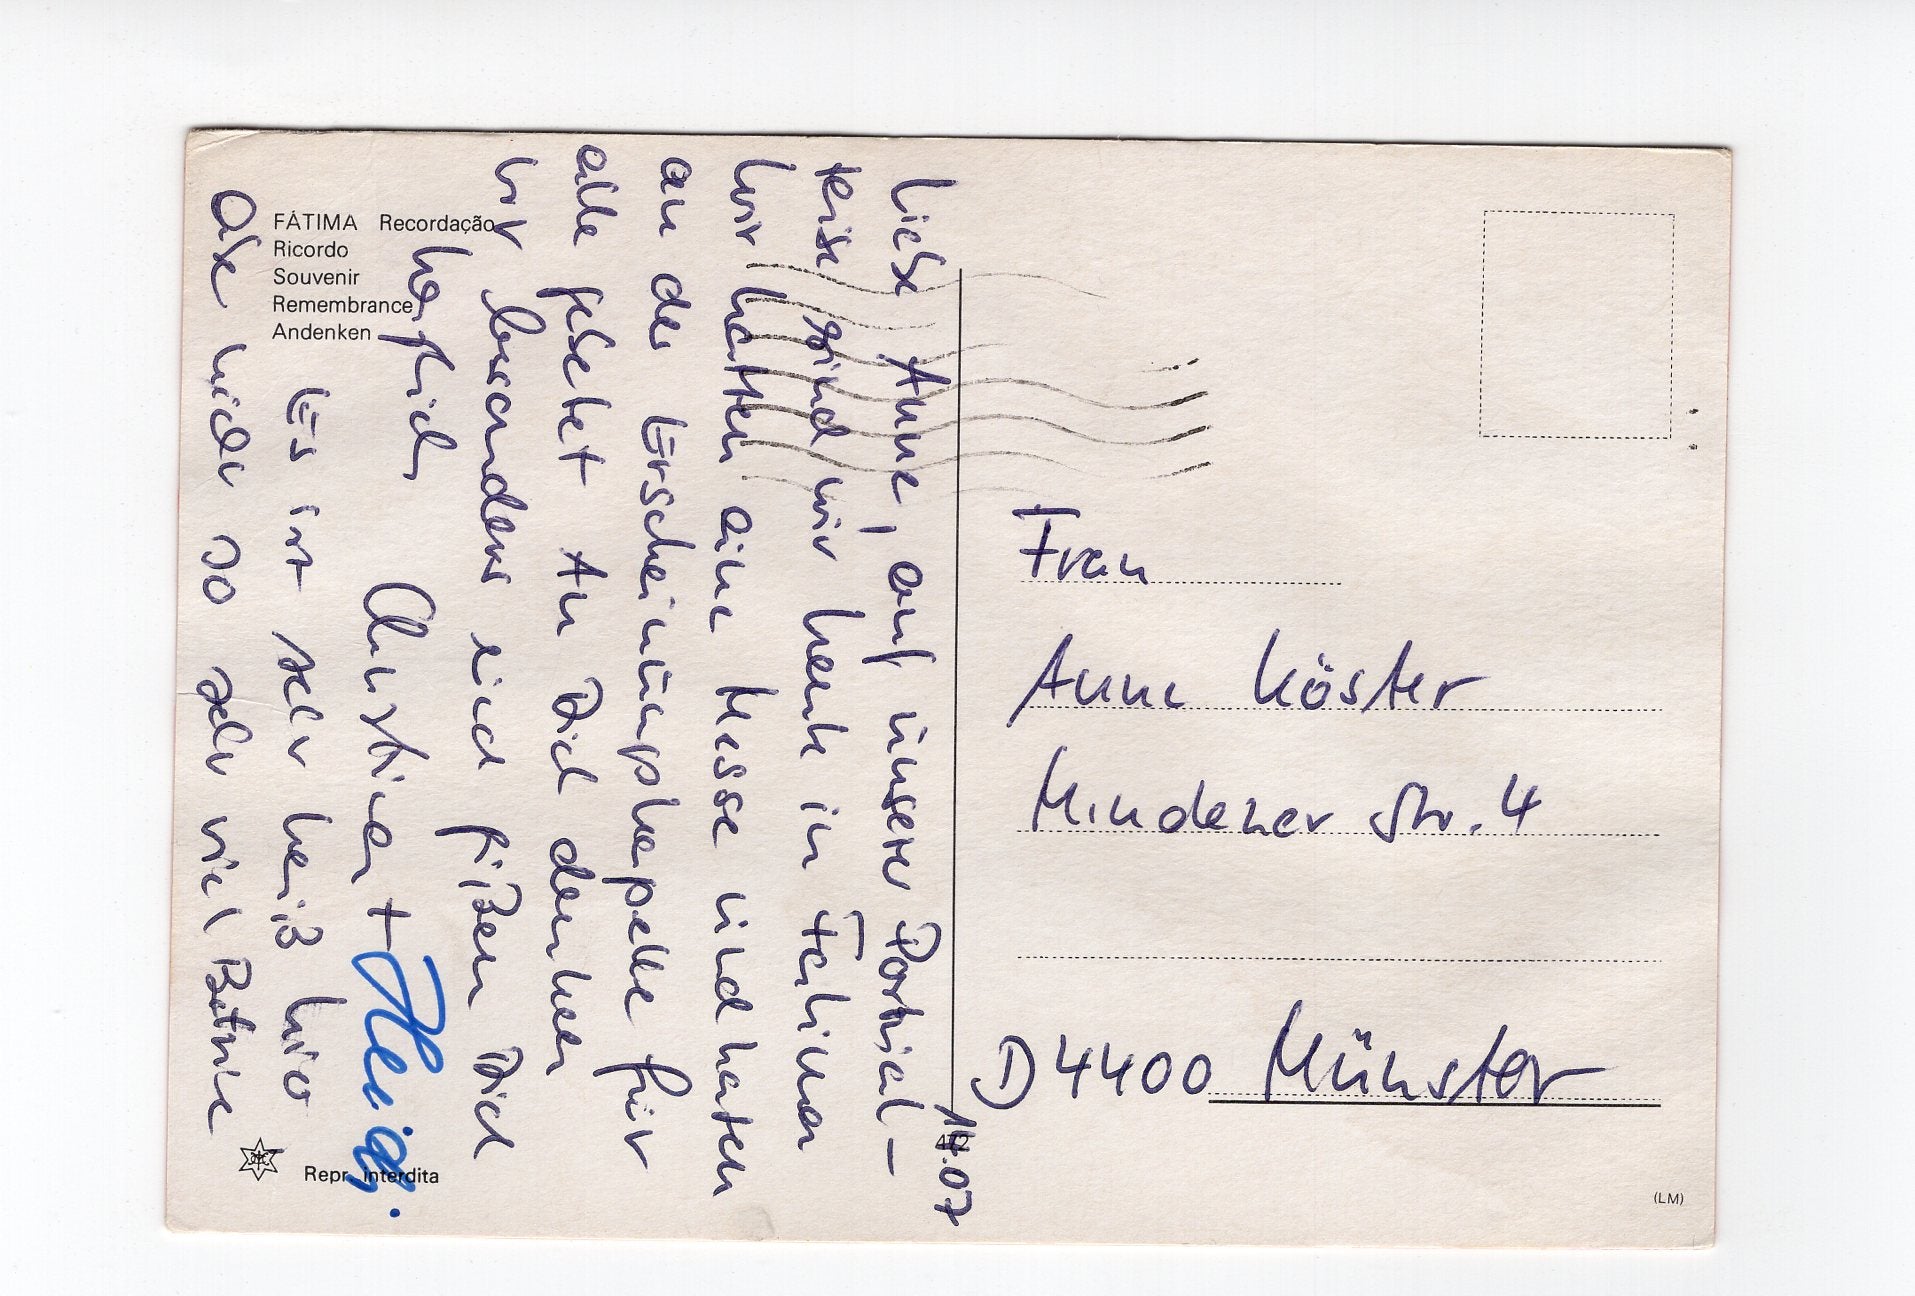 FÁTIMA Recordação
Ricordo
Souvenir
Remembrance
Andenken
14.07
Liebe Anne, auf unserer Portugal-
reise sind wir heute in Fatima
Wir hatten eine Messe und haben
an der Erscheinungskapelle für
alle gebetet An Dich denken
wir besonders und grüßen Dich
herzlich
Christian +
Es ist sehr heiß hier
aber nicht so sehr viel Betrieb
Repr. interdita
472
Frau
Anne Köster
Mindener Str. 4
D 4400 Münster
(LM)